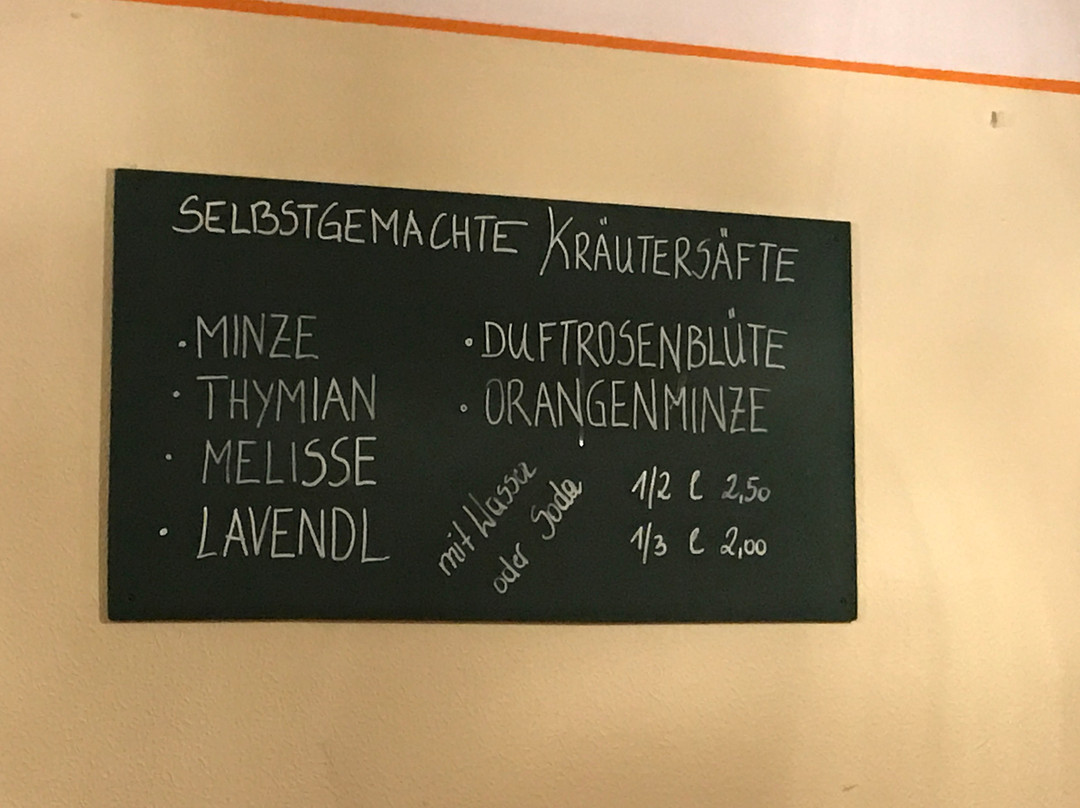 SELBSTGEMACHTE KRÄUTERSÄFTE
• MINZE
• THYMIAN
• MELISSE
• LAVENDL
• DUFTROSENBLÜTE
• ORANGENMINZE
mit Wasser
oder Soda
1/2 l 2,50
1/3 l 2,00